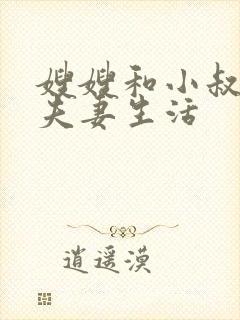 嫂嫂和小叔
夫妻生活
逍遥漠